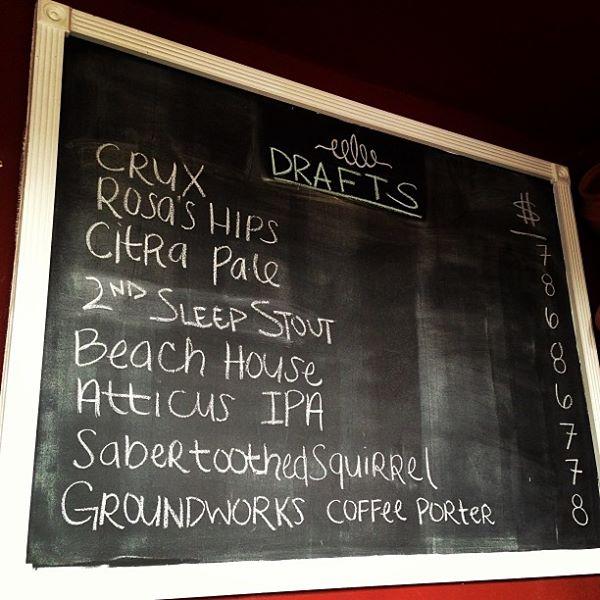 DRAFTS
$
CRUX 7
ROSA'S HIPS 8
CITRA PALE 6
2ND SLEEP STOUT 8
BEACH HOUSE 6
ATTICUS IPA 7
SABERTOOTHED SQUIRREL 7
GROUNDWORKS COFFEE PORTER 8